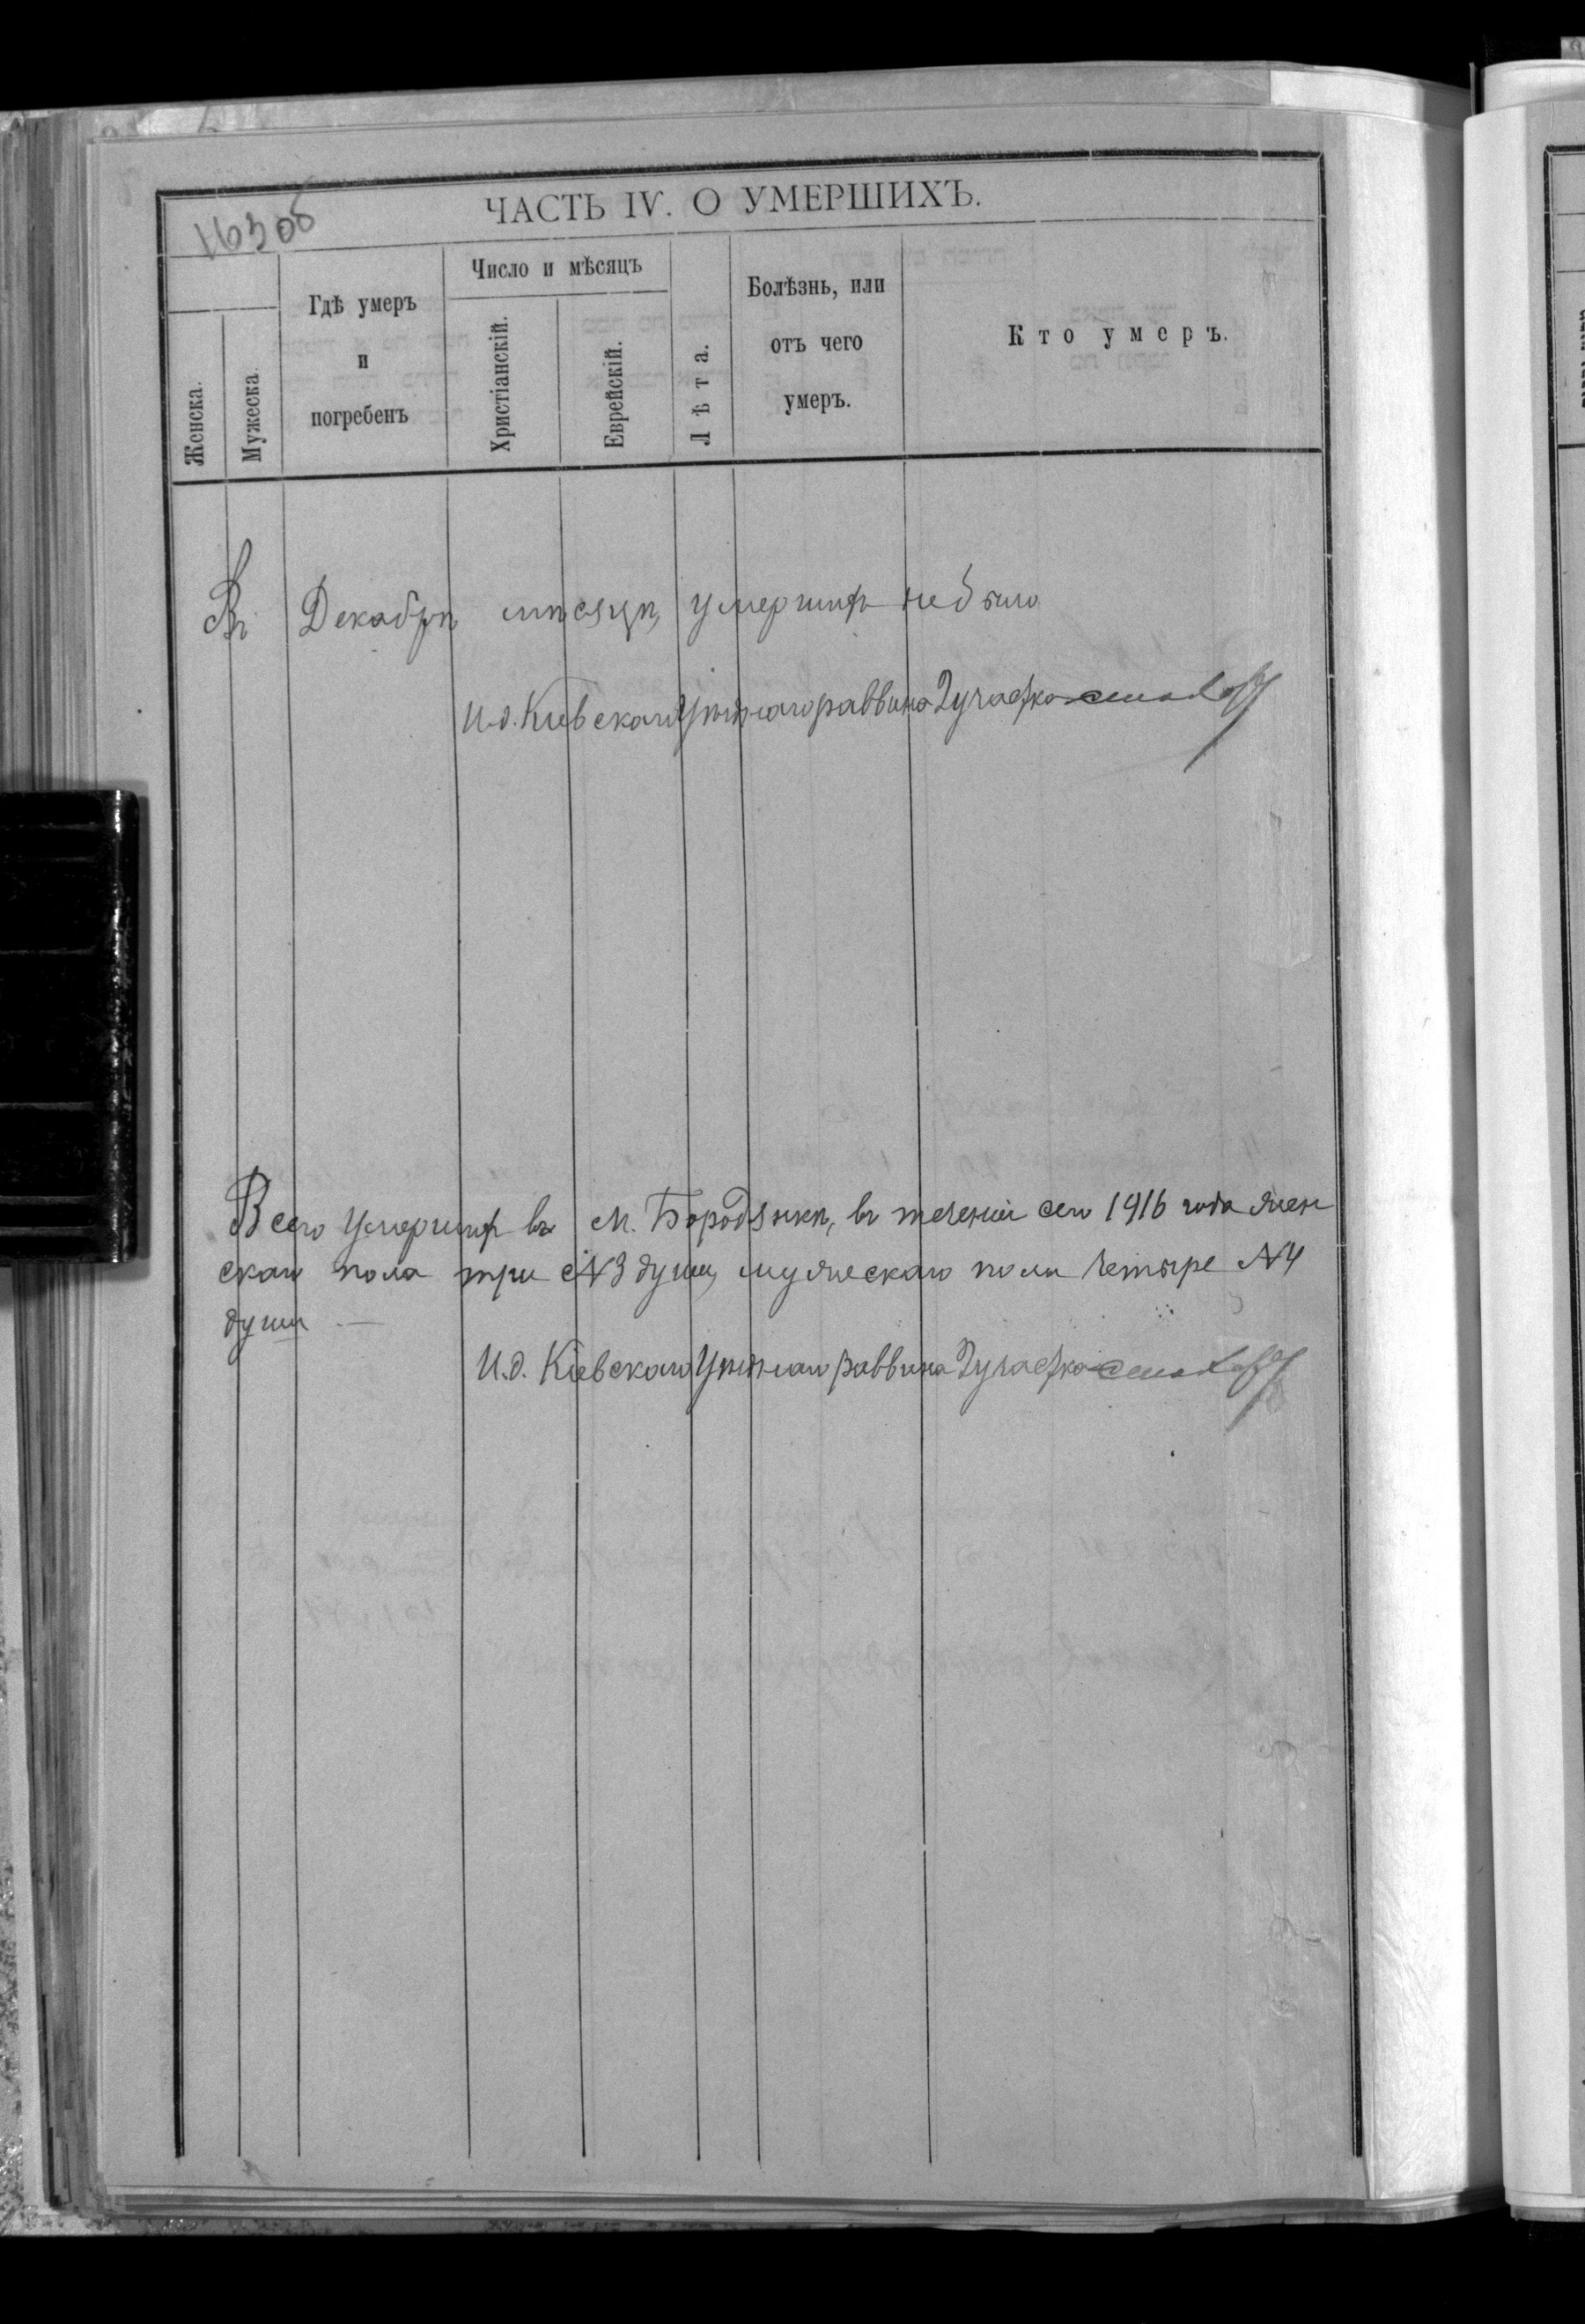 163об
ЧАСТЬ IV. О УМЕРШИХЪ.
Женска.
Мужеска.
Гдѣ умеръ
и
погребенъ
Число и мѣсяцъ
Христіанскій.
Еврейскій.
Лѣта.
Болѣзнь, или
отъ чего
умеръ.
Кто умеръ.
Въ Декабрѣ мѣсяцѣ умершихъ небыло
И.д. Кіевскаго Уѣзднаго раввина
Всего умершихъ въ М. Бородянкѣ, въ теченіи сего 1916 года жен
скаго пола три №3 души, мужескаго пола четыре №4
души —
И.д. Кіевскаго Уѣзднаго раввина